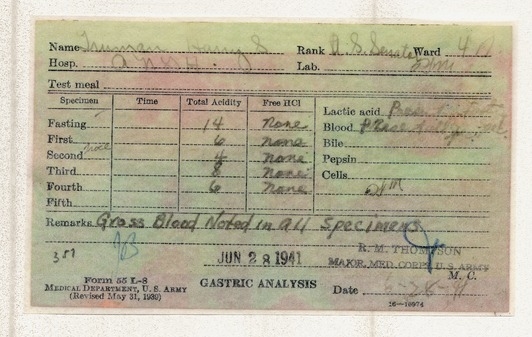 Name Truman Harry S Rank U.S. Senate Ward 4
Hosp. Lab.
Test meal
Specimen Time Total Acidity Free HCl
Lactic acid
Fasting 14 None
Blood
First 6 None
Bile
Second 4 None
Pepsin
Third 8 None
Cells
Fourth 6 None
Fifth
Remarks Gross Blood Noted in All Specimens
357
JUN 28 1941
R. M. THOMPSON
MAJOR, MED. CORPS, U.S. ARMY
M. C.
Form 55 L-8
MEDICAL DEPARTMENT, U. S. ARMY
(Revised May 31, 1939)
GASTRIC ANALYSIS
Date 6-28-41
16—10974